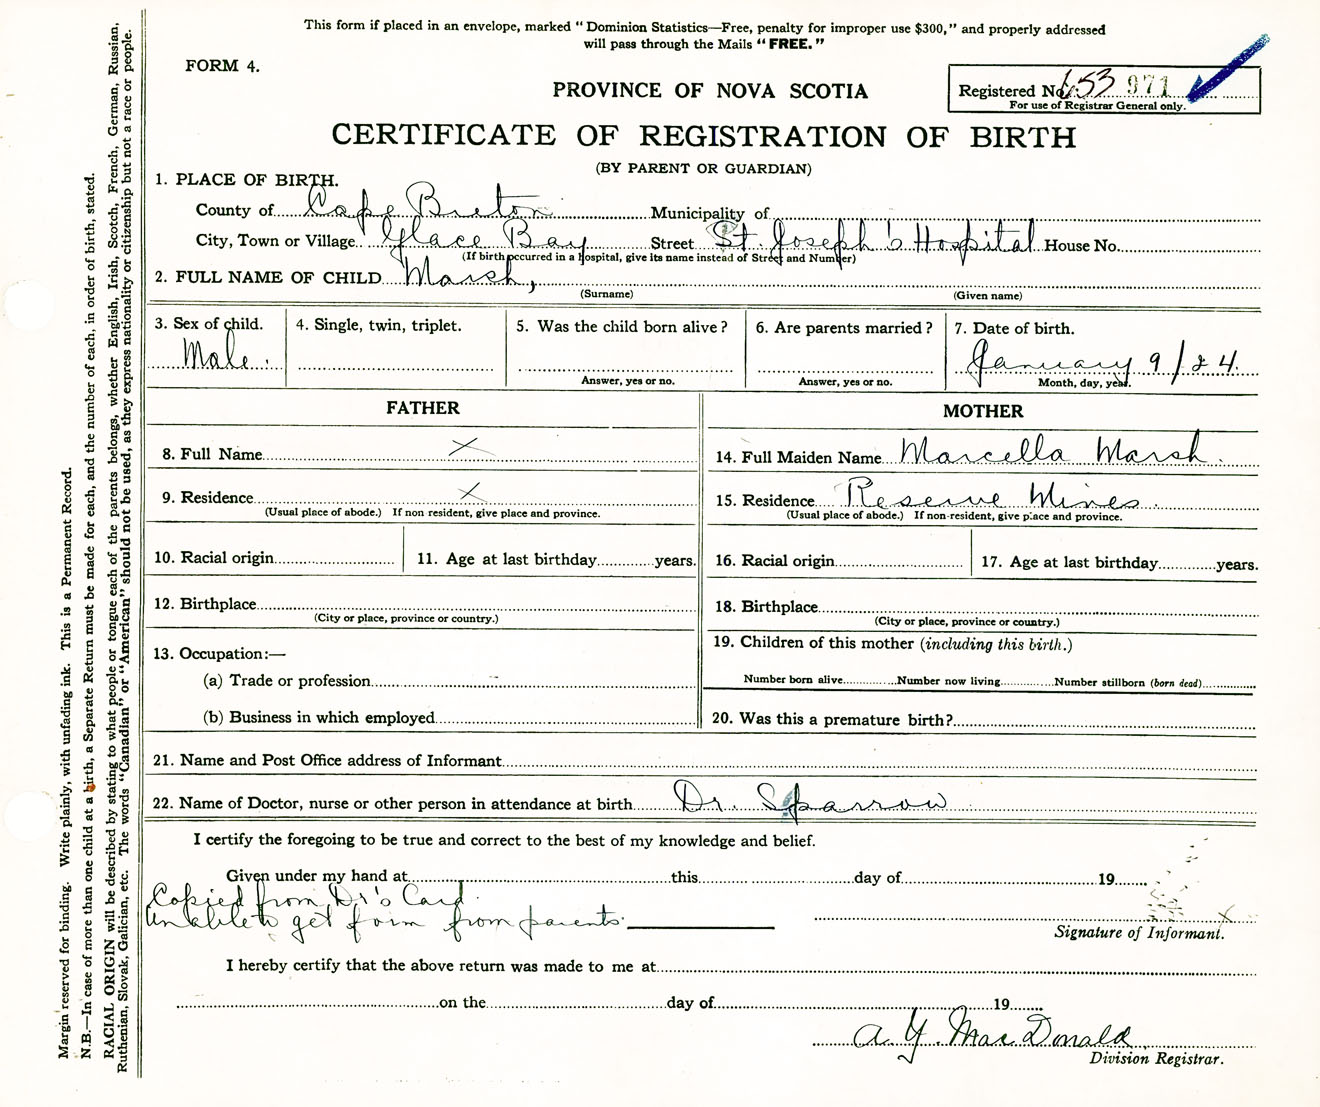 This form if placed in an envelope, marked "Dominion Statistics—Free, penalty for improper use $300," and properly addressed
will pass through the Mails "FREE."
FORM 4.
PROVINCE OF NOVA SCOTIA
Registered No. 653 971
For use of Registrar General only.
CERTIFICATE OF REGISTRATION OF BIRTH
(BY PARENT OR GUARDIAN)
1. PLACE OF BIRTH.
County of Cape Breton Municipality of
City, Town or Village Glace Bay Street St. Joseph's Hospital House No.
(If birth occurred in a hospital, give its name instead of Street and Number)
2. FULL NAME OF CHILD Marsh,
(Surname) (Given name)
3. Sex of child. 4. Single, twin, triplet. 5. Was the child born alive? 6. Are parents married? 7. Date of birth.
Male. January 9/24.
Answer, yes or no. Answer, yes or no. Month, day, year.
FATHER MOTHER
8. Full Name X 14. Full Maiden Name Marcella Marsh.
9. Residence X 15. Residence Reserve Mines.
(Usual place of abode.) If non resident, give place and province. (Usual place of abode.) If non-resident, give place and province.
10. Racial origin 11. Age at last birthday years. 16. Racial origin 17. Age at last birthday years.
12. Birthplace 18. Birthplace
(City or place, province or country.) (City or place, province or country.)
13. Occupation:— 19. Children of this mother (including this birth.)
(a) Trade or profession Number born alive Number now living Number stillborn (born dead)
(b) Business in which employed 20. Was this a premature birth?
21. Name and Post Office address of Informant
22. Name of Doctor, nurse or other person in attendance at birth Dr. Sparrow
I certify the foregoing to be true and correct to the best of my knowledge and belief.
Given under my hand at this day of 19
Copied from Dr's Card.
Unable to get form from parents. X
Signature of Informant.
I hereby certify that the above return was made to me at
on the day of 19
A. Y. MacDonald
Division Registrar.
Margin reserved for binding. Write plainly, with unfading ink. This is a Permanent Record.
N.B.—In case of more than one child at a birth, a Separate Return must be made for each, and the number of each, in order of birth, stated.
RACIAL ORIGIN will be described by stating to what people or tongue each of the parents belongs, whether English, Irish, Scotch, French, German, Russian,
Ruthenian, Slovak, Galician, etc. The words "Canadian" or "American" should not be used, as they express nationality or citizenship but not a race or people.